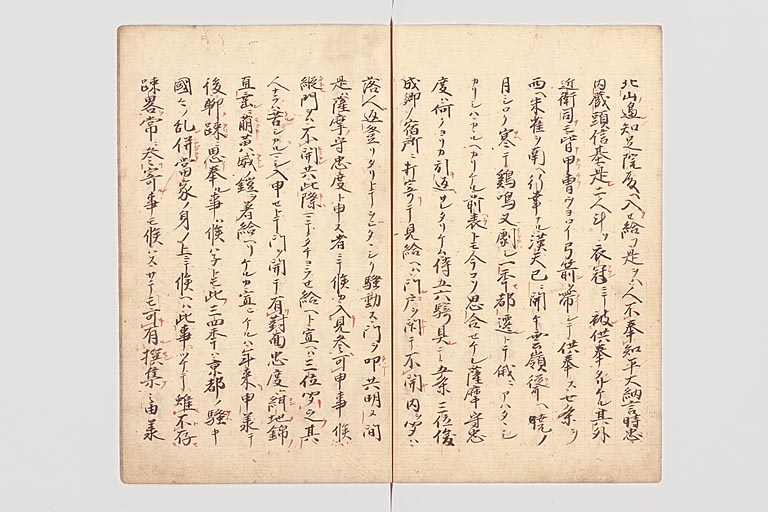 北山邊知足院殿ヘ入セ給フ是ヲハ人不奉知平大納言時忠
内蔵頭信基是二人斗ソ衣冠ニテ被供奉ケル其外
近衛司モ皆甲冑ヲヨロイ弓箭ヲ帯シテ供奉ス七条ヲ
西朱雀ヲ南ヘ行幸ナル漢天已ニ開ケ雲嶺聳ヘ暁ノ
月シロク寒テ鶏鳴又劇シ一年都遷トテ俄ニアハタヽシ
カリシハカヽルヘカリケル前表トモ今コソ思合セケレ薩摩守忠
度ハ何クヨリカ引返サレタリケン侍五六騎具シテ五条ノ三位俊
成卿ノ宿所ニ打寄テ見給ヘハ門戸ヲ閉テ不開内ヲ聞ハ
落人返登リタリトテヲヒタヽシク騒動ス門ヲ叩共明ス聞
是ハ薩摩守忠度ト申ス者ニテ候カ入見参可申事候
縦門ヲハ不開共此際ニテ立チヨラセ給ヘト宣ヘハ三位聞之其
人ナラハ苦シカルマシ入申セトテ門ヲ開テ有對面忠度ハ緋地錦
直垂ニ萌黄威鎧ヲ著給ヘリケルカ宣ヒケルハ年来申承テ
後聊踈ニ思奉ル事ハ候ハネトモ此三四年ハ京都ノ騒キ
國々ノ乱併當家ノ身ノ上ニテ候ヘハ此事雖不存
踈畧常ニ参寄事モ候ハスサテモ可有撰集之由承